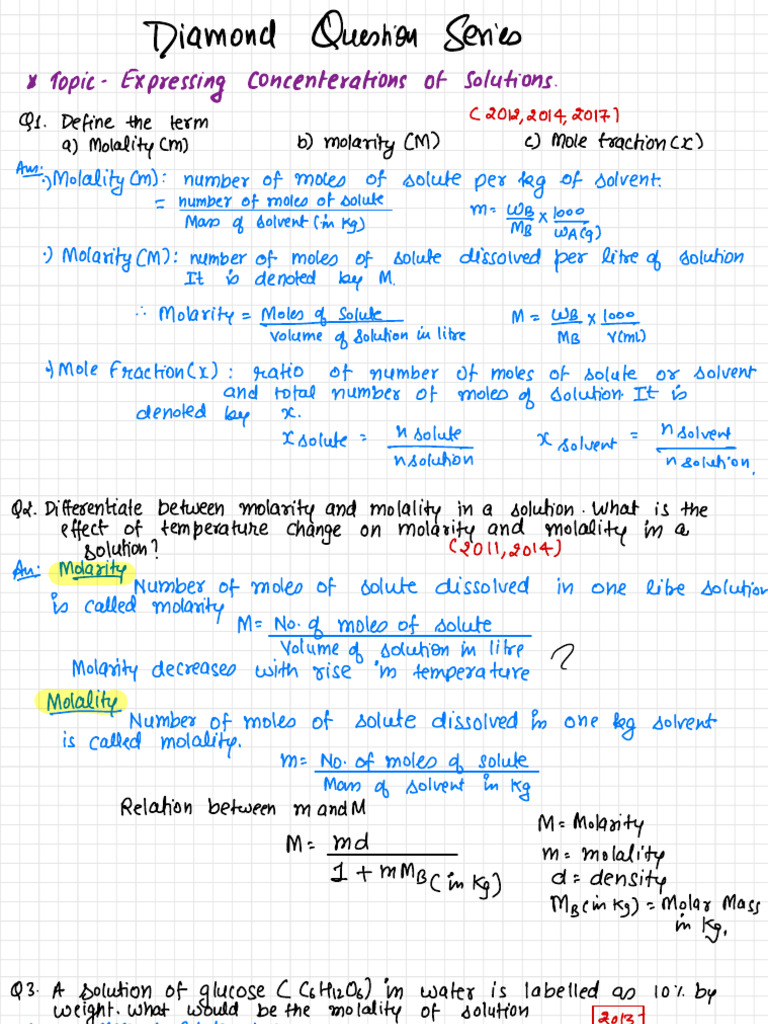 Diamond Question Series
* Topic - Expressing Concenterations of Solutions.
Q1. Define the term (2012, 2014, 2017)
a) Molality (m) b) molarity (M) c) Mole fraction (x)
Ans:
·) Molality (m): number of moles of solute per kg of solvent.
= number of moles of solute / Mass of solvent (in kg) m = WB/MB x 1000/WA(g)
·) Molarity (M): number of moles of solute dissolved per litre of solution
It is denoted by M.
∴ Molarity = Moles of Solute / volume of solution in litre M = WB/MB x 1000/V(mL)
·) Mole Fraction (x): ratio of number of moles of solute or solvent
and total number of moles of solution. It is
denoted by x.
x solute = n solute / n solution x solvent = n solvent / n solution.
Q2. Differentiate between molarity and molality in a solution. What is the
effect of temperature change on molarity and molality in a
solution? (2011, 2014)
An: Molarity
Number of moles of solute dissolved in one litre solution
is called molarity
M = No. of moles of solute / Volume of solution in litre
Molarity decreases with rise in temperature
Molality
Number of moles of solute dissolved in one kg solvent
is called molality.
m = No. of moles of solute / Mass of solvent in kg
Relation between m and M
M = md / 1 + mMB (in kg)
M = Molarity
m = molality
d = density
MB (in kg) = Molar Mass
in kg.
Q3. A solution of glucose (C6H12O6) in water is labelled as 10% by
weight. what would be the molality of solution 2013